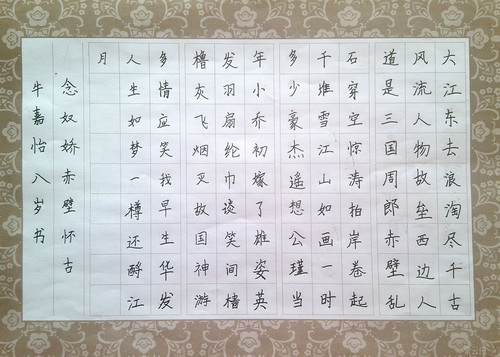 大江东去浪淘尽千古
风流人物故垒西边人
道是三国周郎赤壁乱
石穿空惊涛拍岸卷起
千堆雪江山如画一时
多少豪杰遥想公瑾当
年小乔初嫁了雄姿英
发羽扇纶巾谈笑间樯
橹灰飞烟灭故国神游
多情应笑我早生华发
人生如梦一樽还酹江
月
念奴娇赤壁怀古
牛嘉怡八岁书